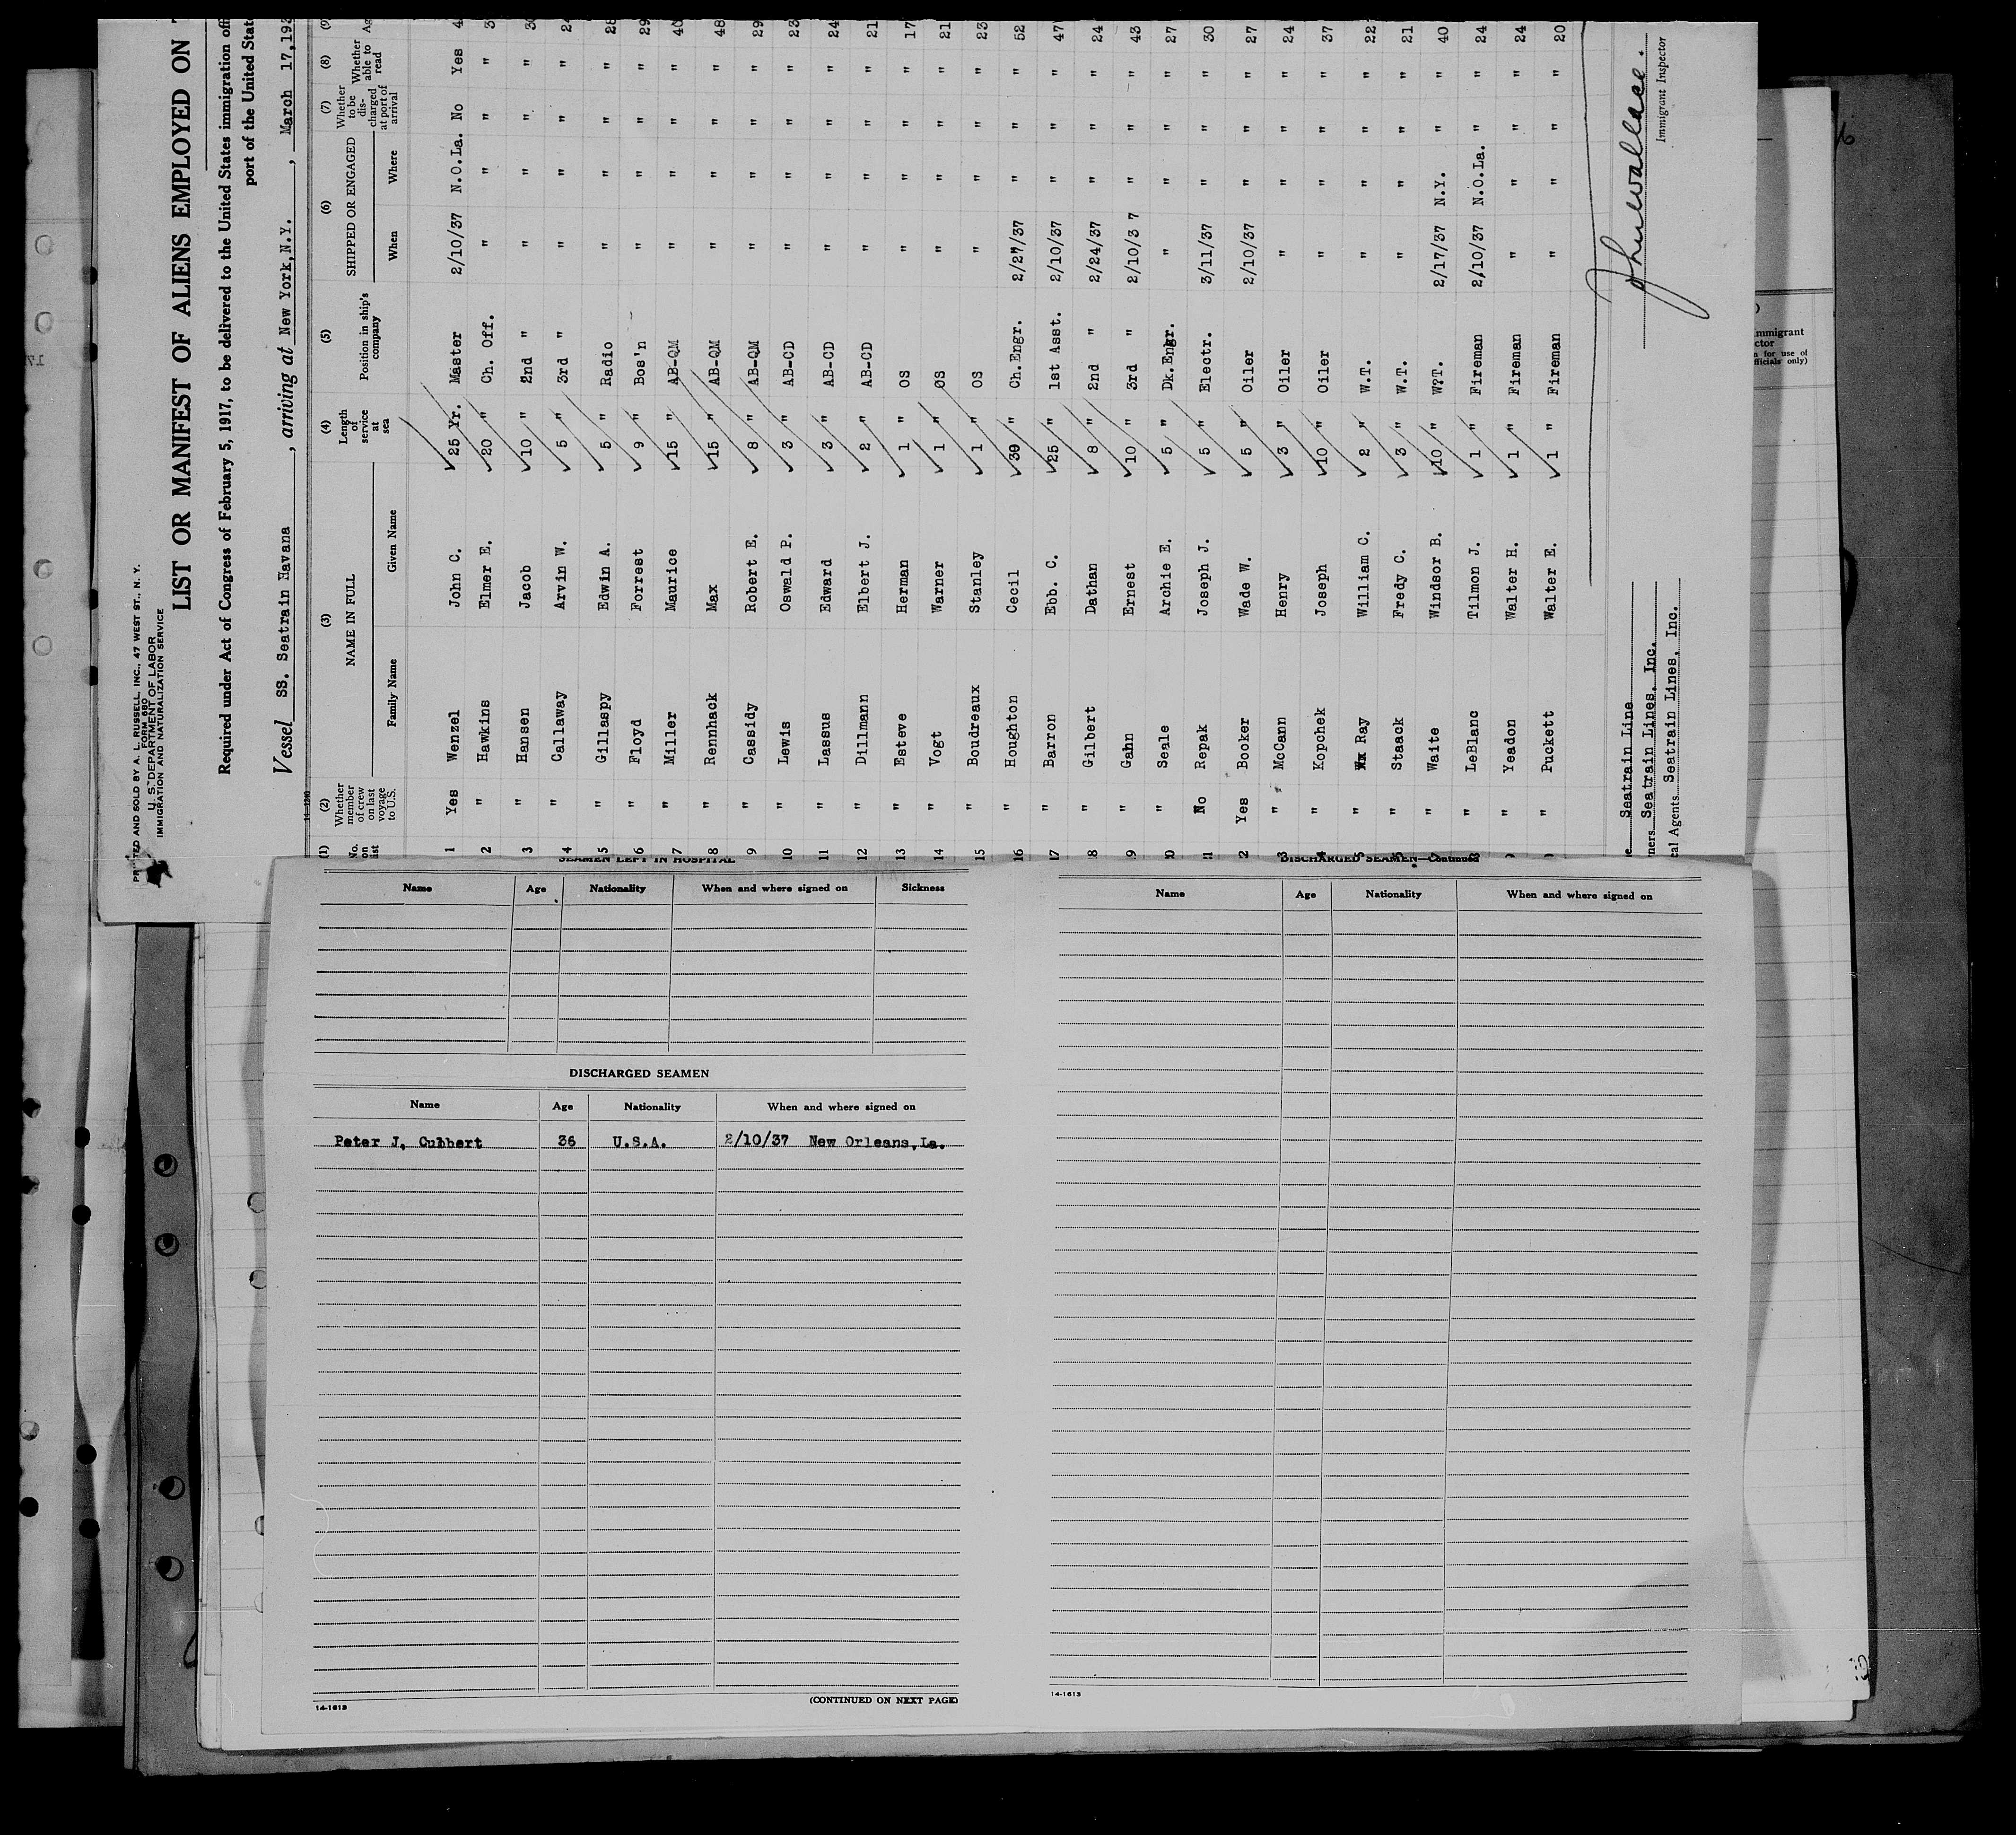 PRINTED AND SOLD BY A. L. RUSSELL, INC., 47 WEST ST., N. Y.
FORM 680
U. S. DEPARTMENT OF LABOR
IMMIGRATION AND NATURALIZATION SERVICE
LIST OR MANIFEST OF ALIENS EMPLOYED ON
Required under Act of Congress of February 5, 1917, to be delivered to the United States immigration
port of the United
Vessel SS. Seatrain Havana, arriving at New York,N.Y., March 17,193
(1) (2) (3) (4) (5) (6) (7) (8)
No. on list Whether member of crew on last voyage to U.S. NAME IN FULL Family Name Given Name Length of service at sea Position in ship's company SHIPPED OR ENGAGED When Where Whether to be discharged at port of arrival Whether able to read
1 Yes Wenzel John C. 25 Yr. Master 2/10/37 N.O.La. No Yes 4
2 " Hawkins Elmer E. 20 " Ch. Off. " " " " 3
3 " Hansen Jacob 10 " 2nd " " " " "
4 " Callaway Arvin W. 5 " 3rd " " " " " 24
5 " Gillaspy Edwin A. 5 " Radio " " " " 28
6 " Floyd Forrest 9 " Bos'n " " " " 29
7 " Miller Maurice 15 " AB-QM " " " " 40
8 " Rennhack Max 15 " AB-QM " " " " 48
9 " Cassidy Robert E. 8 " AB-QM " " " " 29
10 " Lewis Oswald P. 3 " AB-CD " " " " 23
11 " Lassus Edward 3 " AB-CD " " " " 24
12 " Dillmann Elbert J. 2 " AB-CD " " " " 21
13 " Esteve Herman 1 " OS " " " " 17
14 " Vogt Warner 1 " OS " " " " 21
15 " Boudreaux Stanley 1 " OS " " " " 23
16 " Houghton Cecil 30 " Ch.Engr. 2/27/37 " " " 52
17 " Barron Ebb. C. 25 " 1st Asst. 2/10/37 " " " 47
8 " Gilbert Dathan 8 " 2nd " 2/24/37 " " " 24
9 " Gahn Ernest 10 " 3rd " 2/10/3 7 " " " 43
0 " Seale Archie E. 5 " Dk.Engr. " " " " 27
1 No Repak Joseph J. 5 " Electr. 3/11/37 " " " 30
2 Yes Booker Wade W. 5 " Oiler 2/10/37 " " " 27
3 " McCann Henry 3 " Oiler " " " " 24
4 " Kopchek Joseph 10 " Oiler " " " " 37
" Ray William C. 2 " W.T. " " " " 22
" Staack Fredy C. 3 " W.T. " " " " 21
" Waite Windsor B. 10 " W?T. 2/17/37 N.Y. " " 40
" LeBlanc Tilmon J. 1 " Fireman 2/10/37 N.O.La. " " 24
" Yeadon Walter H. 1 " Fireman " " " " 24
" Puckett Walter E. 1 " Fireman " " " " 20
Seatrain Line
Seatrain Lines, Inc.
Agents Seatrain Lines, Inc.
Immigrant Inspector
SEAMEN LEFT IN HOSPITAL
Name Age Nationality When and where signed on Sickness
DISCHARGED SEAMEN
Name Age Nationality When and where signed on
Peter J. Cubbert 36 U.S.A. 2/10/37 New Orleans,La.
14-1613
(CONTINUED ON NEXT PAGE)
DISCHARGED SEAMEN—Continued
Name Age Nationality When and where signed on
14-1613